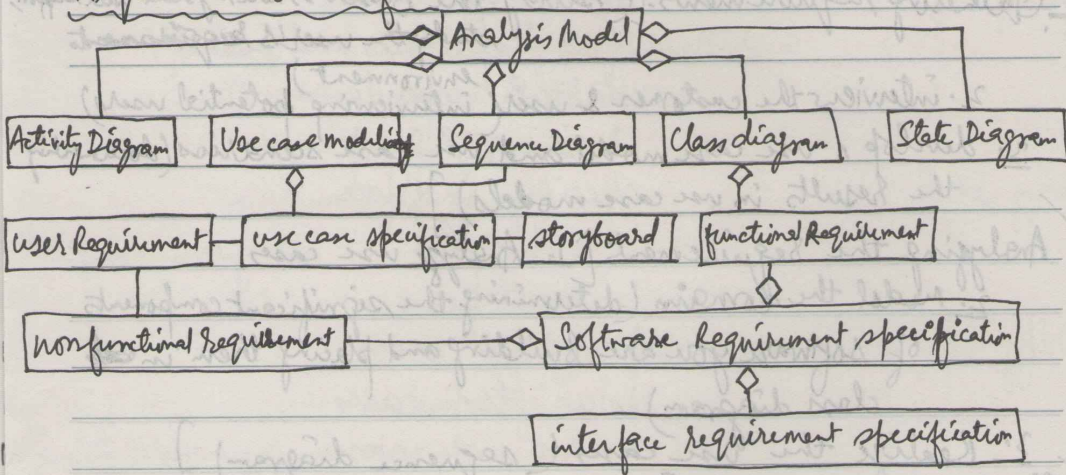 Analysis Model
Activity Diagram
Use case modeling
Sequence Diagram
Class diagram
State Diagram
user Requirement
use case specification
storyboard
functional Requirement
nonfunctional requirement
Software Requirement specification
interface requirement specification